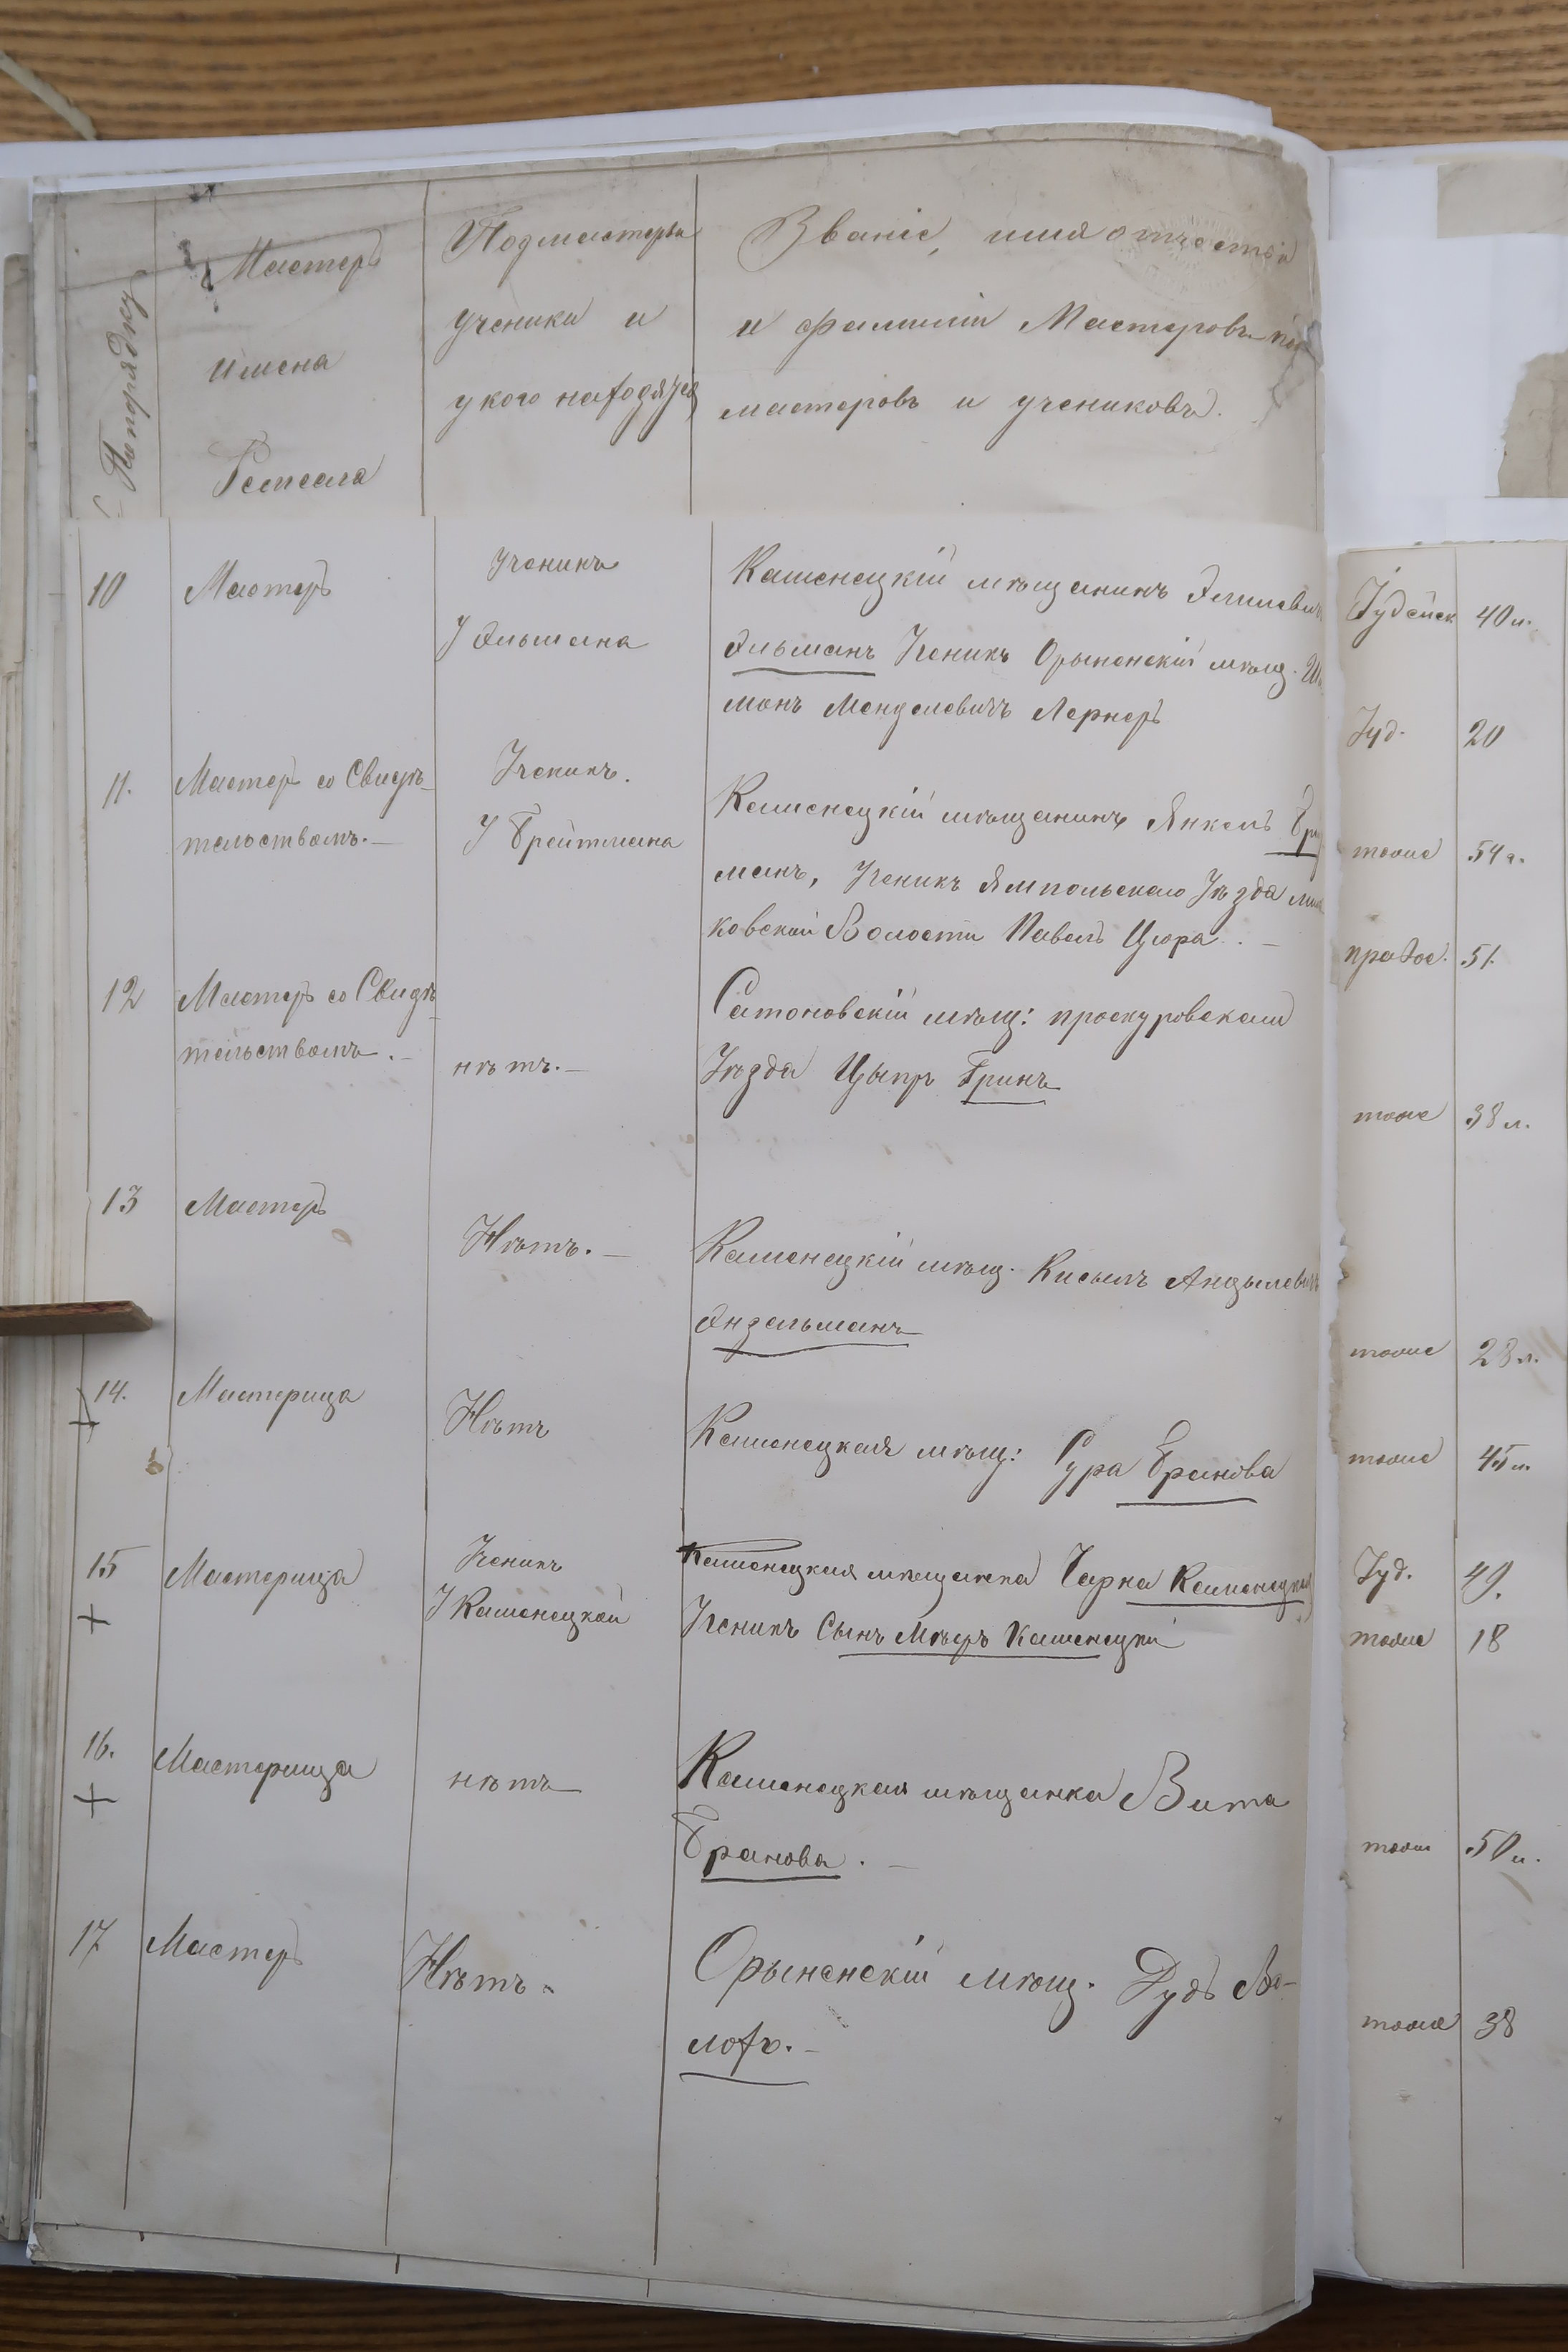 По порядку
Мастеръ
имена
Ремесла
Подмастерья
ученики и
у кого находятся
Званіе, имя отчество
и фамиліи Мастеровъ
мастеровъ и учениковъ.
10
Мастеръ
Ученикъ
У Эльмана
Каменецкій мѣщанинъ
Эльманъ Ученикъ Орыненскій мѣщ.
монъ Менделевичъ Лернеръ
Іудейск 40 л.
Іуд. 20
11.
Мастеръ со Свидѣ-
тельствомъ. –
Ученикъ.
У Брейтмана
Каменецкій мѣщанинъ Янкель
манъ, Ученикъ Ямпольскаго Уѣзда
ковской Волости Павелъ Цюра. –
тоже 54 л.
правос. 51.
12
Мастеръ со Свидѣ-
тельствомъ. –
нѣтъ. –
Сатоновскій мѣщ: проскуровскаго
Уѣзда Цыпр Гринъ
тоже 38 л.
13
Мастеръ
Нѣтъ. –
Каменецкій мѣщ. Кисыль Анцылевичъ
Эндельманъ
тоже 28 л.
14.
Мастерица
Нѣтъ
Каменецкая мѣщ: Сура Бранова
тоже 45 л.
15
Мастерица
Ученикъ
У Каменецкой
Каменецкая мѣщанка Чарна Каменецкая
Ученикъ Сынъ Мѣеръ Каменецкій
Іуд. 49.
тоже 18
16.
Мастерица
нѣтъ
Каменецкая мѣщанка Вита
Бранова. –
тоже 50 л.
17
Мастеръ
Нѣтъ.
Орыненскій мѣщ. Дудъ Во-
лохъ. –
тоже 38